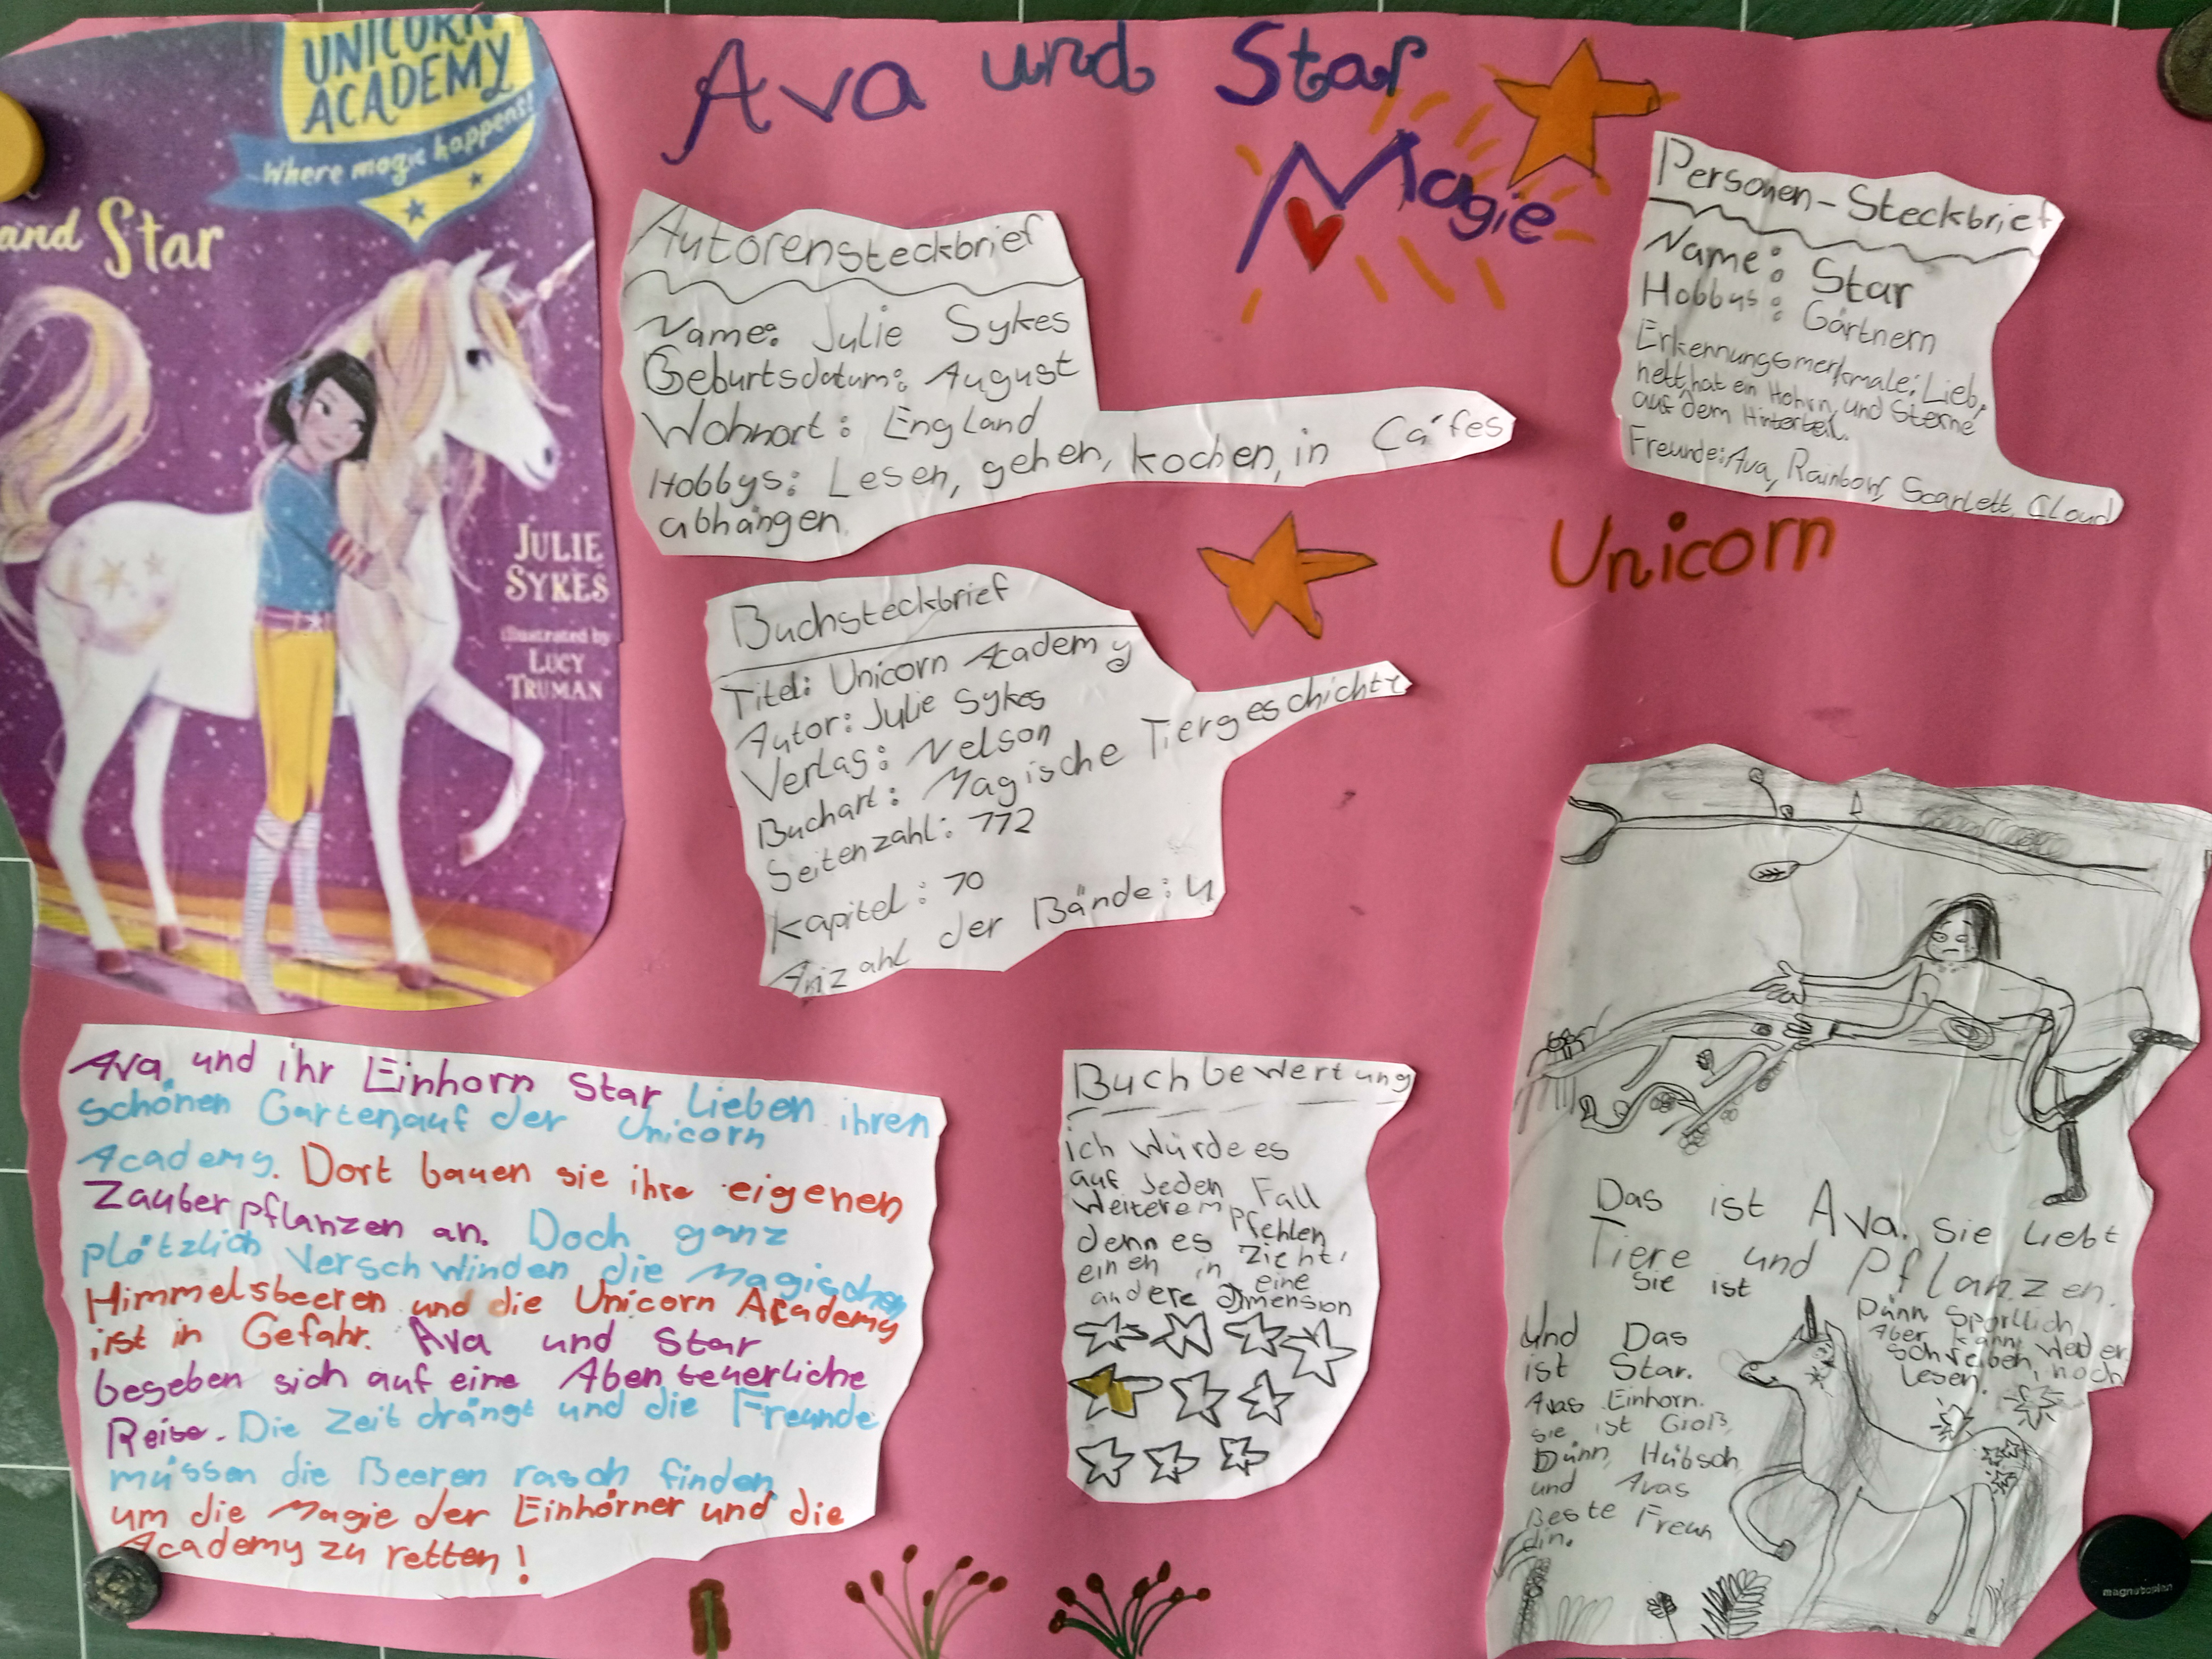 UNICORN
ACADEMY
Where magic happens!
and Star
JULIE
SYKES
illustrated by
LUCY
TRUMAN
Ava und Star
Magie
Unicorn
Autorensteckbrief
Name: Julie Sykes
Geburtsdatum: August
Wohnort: England
Hobbys: Lesen, gehen, kochen, in Cáfes
abhängen.
Personen-Steckbrief
Name: Star
Hobbys: Gärtnern
Erkennungsmerkmale: Lieb,
nett, hat ein Hohrn, und Sterne
auf dem Hinterteil.
Freunde: Ava, Rainbow, Scarlett, Cloud
Buchsteckbrief
Titel: Unicorn Academy
Autor: Julie Sykes
Verlag: Nelson
Buchart: Magische Tiergeschichte
Seitenzahl: 112
Kapitel: 10
Anzahl der Bände: 4
Ava und ihr Einhorn Star Lieben ihren
schönen Garten auf der Unicorn
Academy. Dort bauen sie ihre eigenen
Zauberpflanzen an. Doch ganz
plötzlich verschwinden die Magischen
Himmelsbeeren und die Unicorn Academy
ist in Gefahr. Ava und Star
begeben sich auf eine Abenteuerliche
Reise. Die Zeit drängt und die Freunde
müssen die Beeren rasch finden,
um die Magie der Einhörner und die
Academy zu retten!
Buchbewertung
ich würde es
auf Jeden Fall
Weiterempfehlen
denn es zieht
einen in eine
andere Dimension
Das ist Ava. Sie liebt
Tiere und Pflanzen.
Sie ist
Dünn, Sportlich
Aber kann weder
schreiben, noch
Lesen.
Und Das
ist Star.
Avas Einhorn.
sie ist Groß,
Dünn, Hübsch
und Avas
Beste Freun
din.
magnetoplan